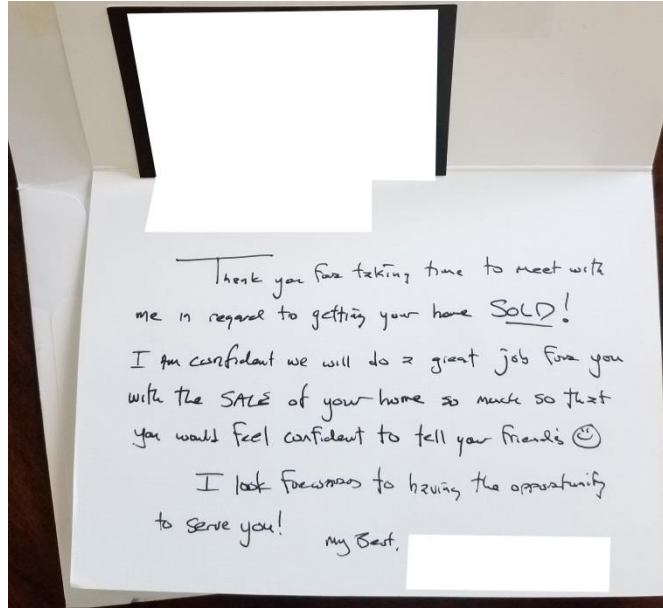 Thank you for taking time to meet with
me in regard to getting your home SOLD!
I Am confident we will do a great job for you
with the SALE of your home so much so that
you would feel confident to tell your friends ☺
I look forward to having the opportunity
to serve you!
My Best,